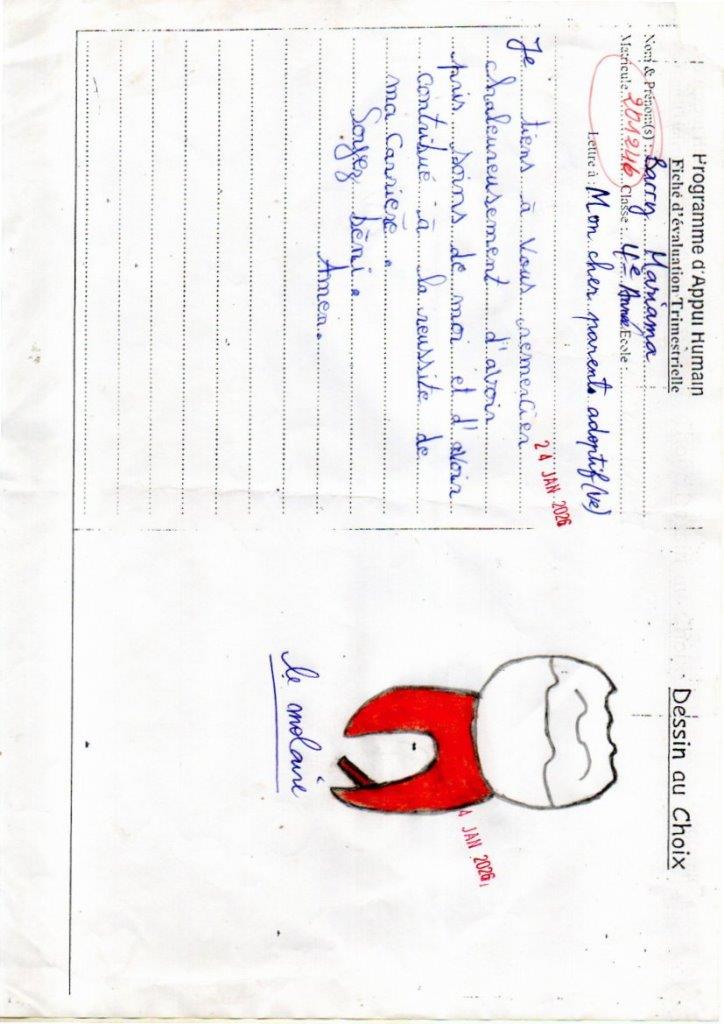 Programme d'Appui Humain
Fiche d'évaluation Trimestrielle
Nom & Prénom(s) : Barry Mariama
Matricule 201246 Classe : 4e Année Ecole
Lettre à : Mon cher parents adoptif(ve)
24 JAN 2026
Je tiens à vous remercier
chaleureusement d'avoir
pris soins de moi et d'avoir
contribué à la reussite de
ma carrière.
Soyez béni.
Amen.
Dessin au Choix
4 JAN 2026
le molaire